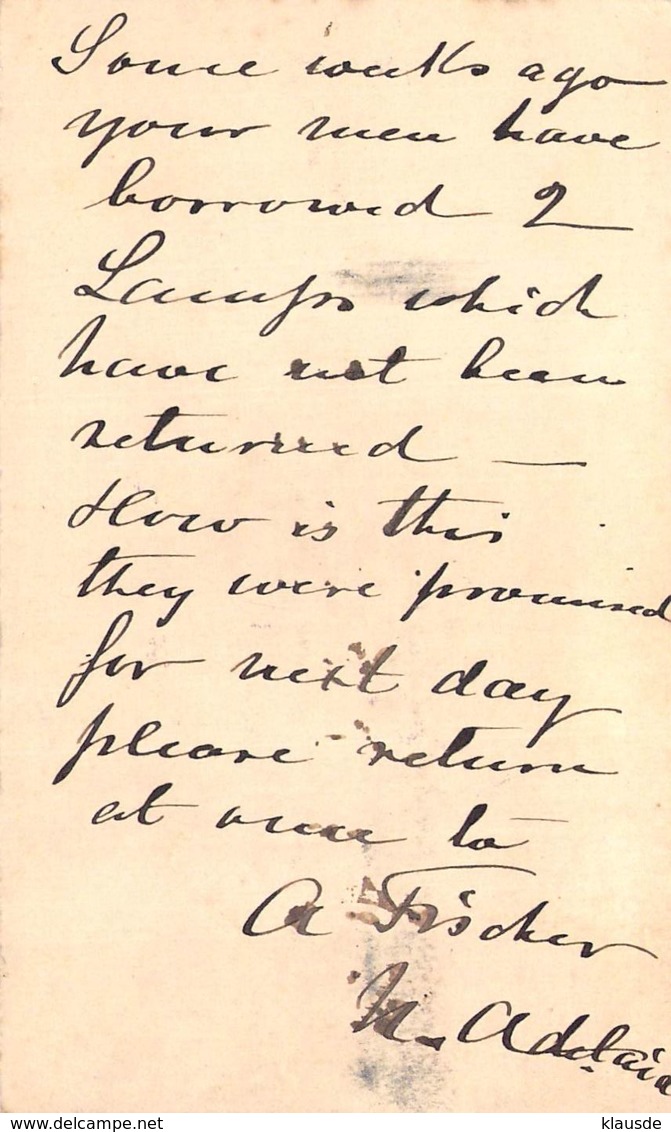 Some weeks ago
your men have
borrowed 2
Lamps which
have not been
returned —
How is this
they were promised
for next day
please return
at once to
A Fischer
N. Adelaide
klausde